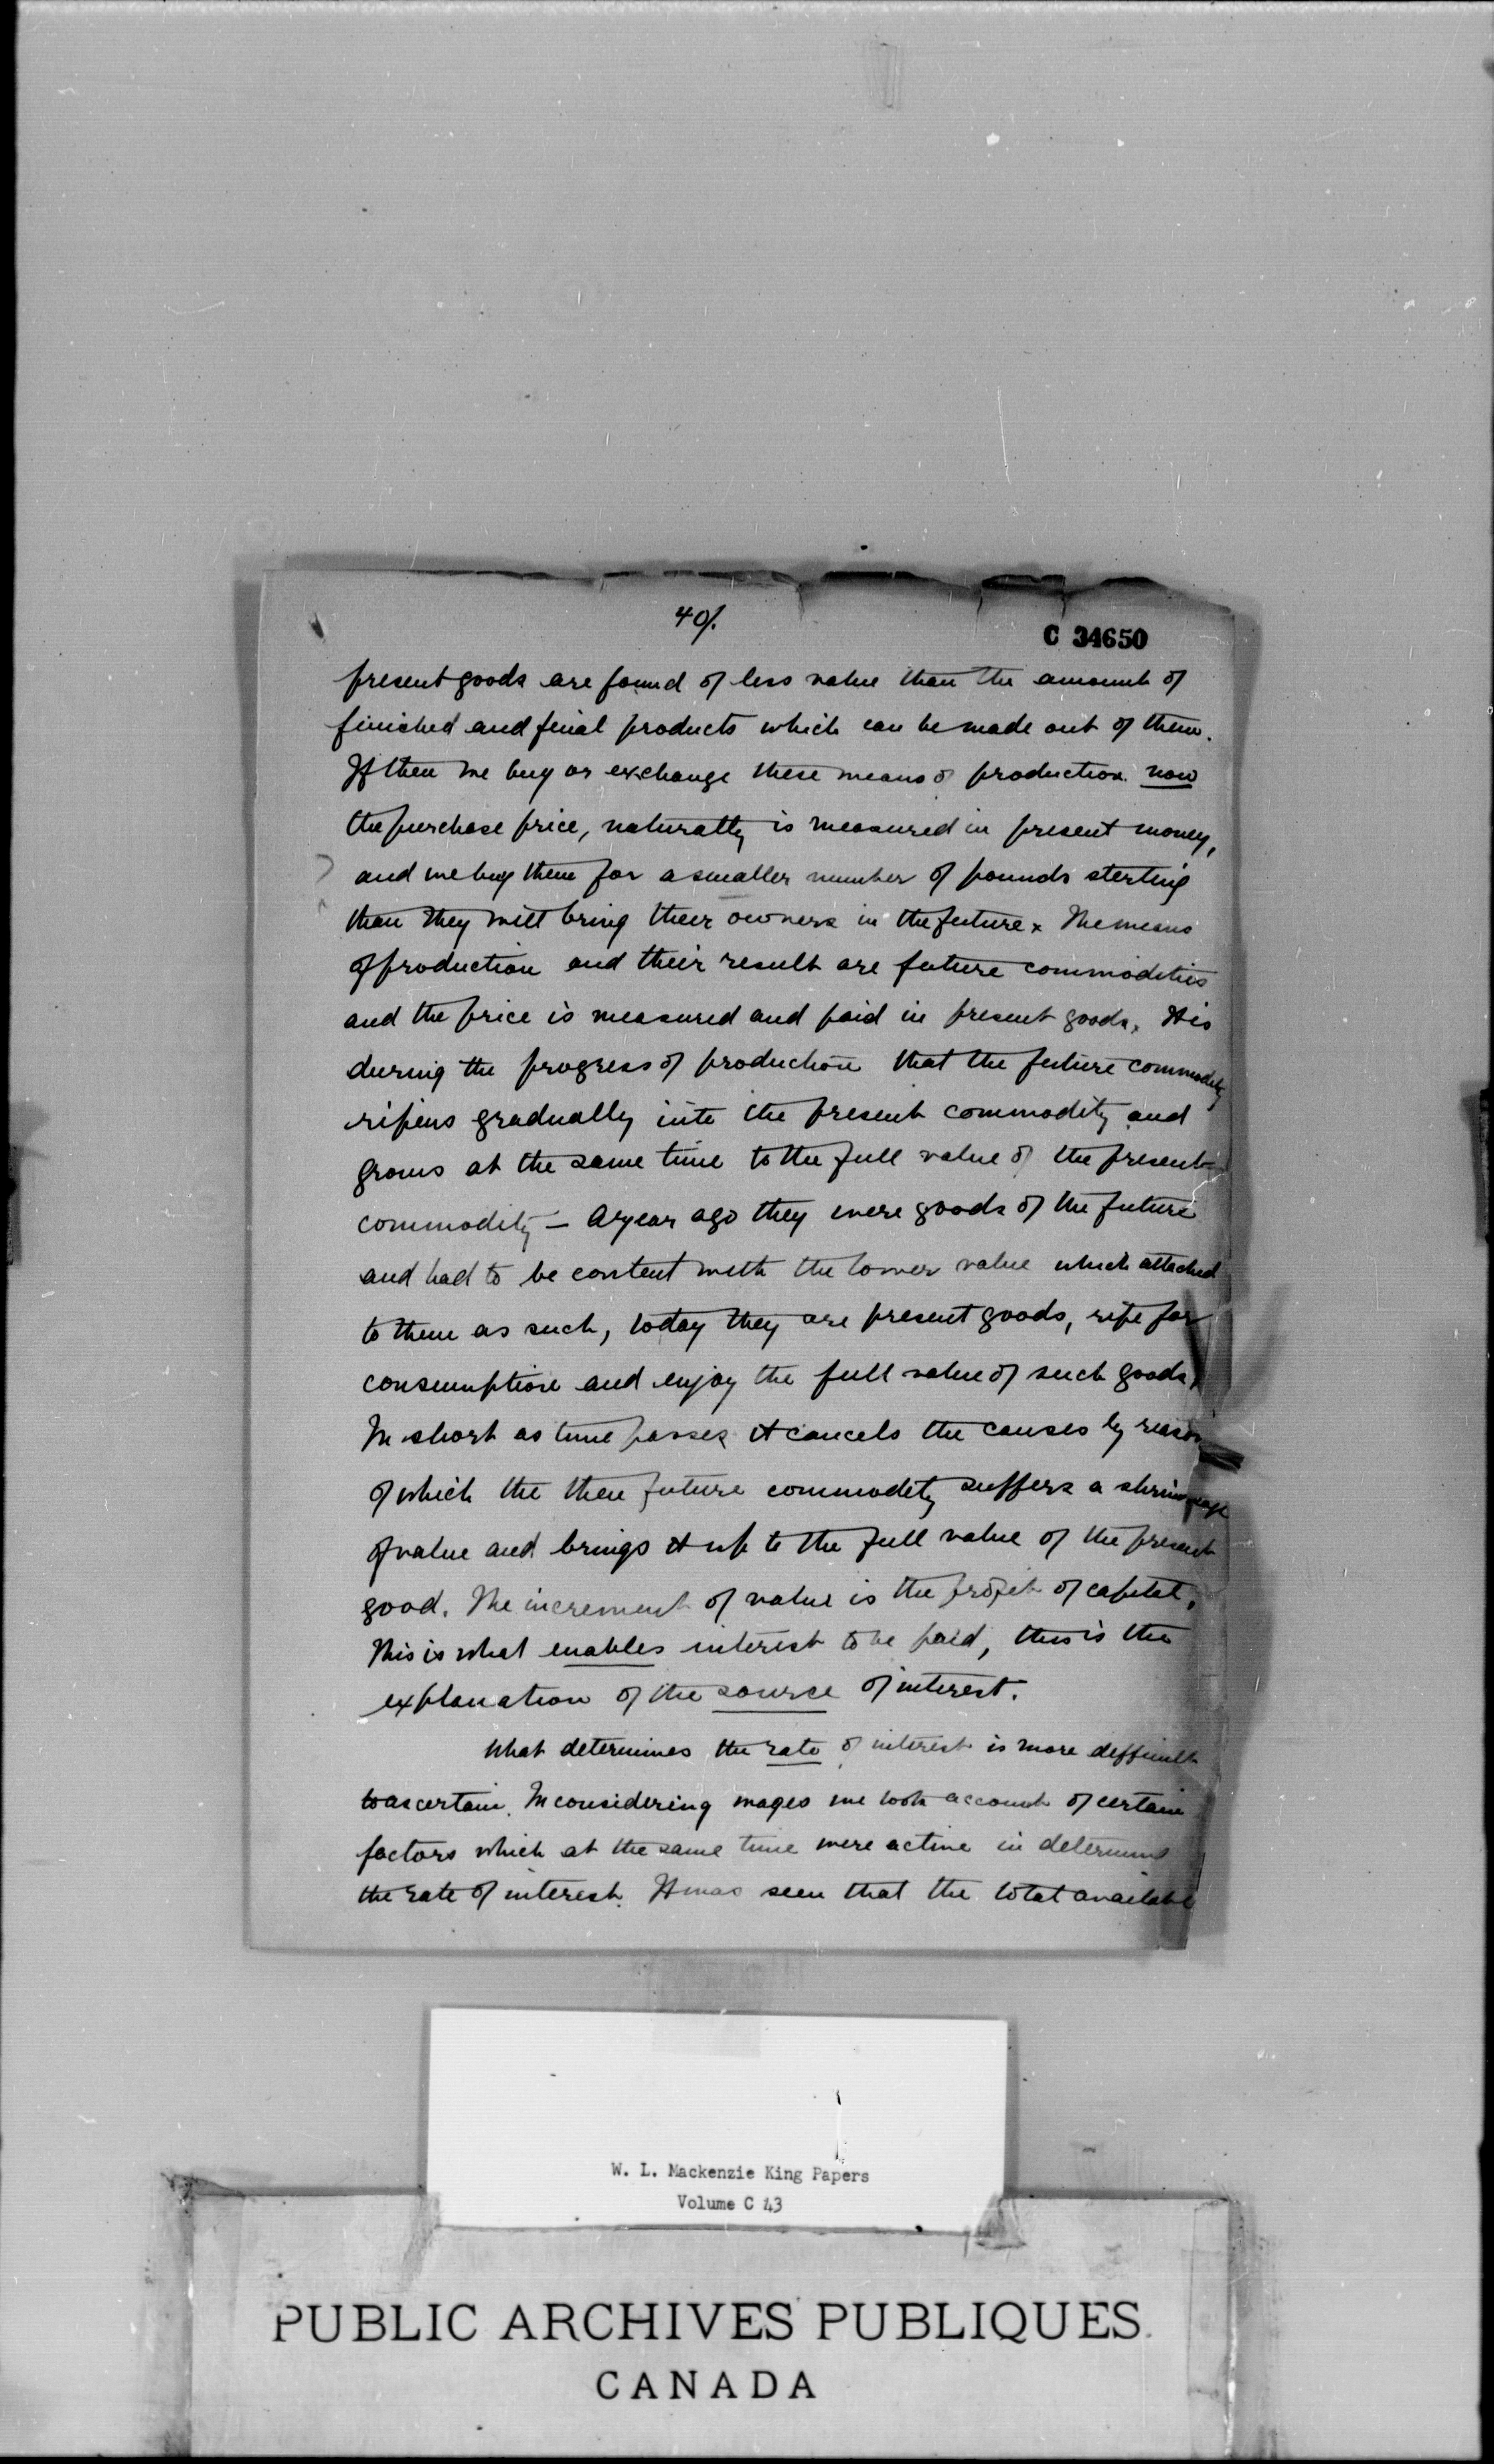 40/.
C 34650
present goods are found of less value than the amount of
finished and final products which can be made out of them.
If then we buy or exchange these means of production now
the purchase price, naturally is measured in present money,
and we buy them for a smaller number of pounds sterling
than they will bring their owners in the future. The means
of production and their result are future commodities
and the price is measured and paid in present goods. It is
during the progress of production that the future commodity
ripens gradually into the present commodity and
grows at the same time to the full value of the present
commodity – A year ago they were goods of the future
and had to be content with the lower value which attached
to them as such, today they are present goods, ripe for
consumption and enjoy the full value of such goods,
In short as time passes it cancels the causes by reason
of which the then future commodity suffers a shrinkage
of value and brings it up to the full value of the present
good. The increment of value is the profit of capital,
This is what enables interest to be paid, this is the
explanation of the source of interest.
What determines the rate of interest is more difficult
to ascertain. In considering wages we took account of certain
factors which at the same time were active in determin
the rate of interest. It was seen that the total available
W. L. Mackenzie King Papers
Volume C 43
PUBLIC ARCHIVES PUBLIQUES
CANADA